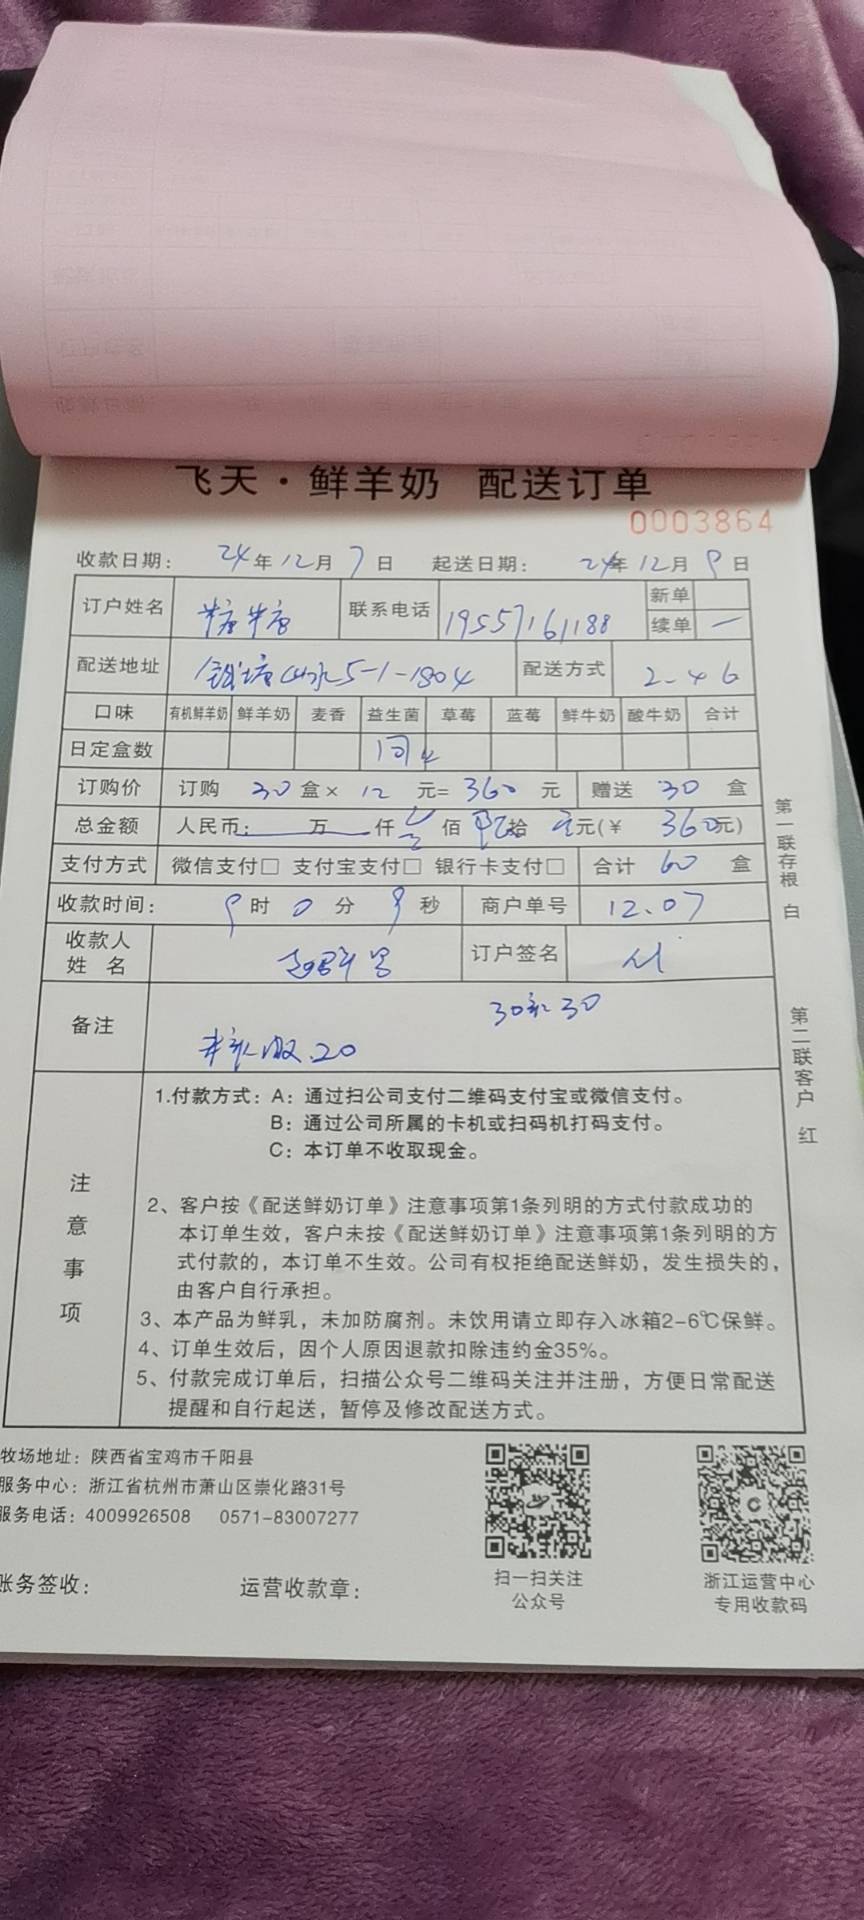 飞天·鲜羊奶 配送订单
0003864
收款日期: 24年12月7日 起送日期: 24年12月9日
订户姓名 糖糖 联系电话 19557161188 新单
续单 一
配送地址 钱塘山水5-1-1804 配送方式 2-46
口味 有机鲜羊奶 鲜羊奶 麦香 益生菌 草莓 蓝莓 鲜牛奶 酸牛奶 合计
日定盒数
订购价 订购 30 盒× 12 元= 360 元 赠送 30 盒
总金额 人民币: 万 仟 佰 拾 元(¥ 360元)
支付方式 微信支付□ 支付宝支付□ 银行卡支付□ 合计 60 盒
收款时间: 9时 0 分 9 秒 商户单号 12.07
收款人
姓 名
订户签名
备注
30 30
20
注意事项
1.付款方式: A: 通过扫公司支付二维码支付宝或微信支付。
B: 通过公司所属的卡机或扫码机打码支付。
C: 本订单不收取现金。
2、客户按《配送鲜奶订单》注意事项第1条列明的方式付款成功的
本订单生效，客户未按《配送鲜奶订单》注意事项第1条列明的方
式付款的，本订单不生效。公司有权拒绝配送鲜奶，发生损失的，
由客户自行承担。
3、本产品为鲜乳，未加防腐剂。未饮用请立即存入冰箱2-6℃保鲜。
4、订单生效后，因个人原因退款扣除违约金35%。
5、付款完成订单后，扫描公众号二维码关注并注册，方便日常配送
提醒和自行起送，暂停及修改配送方式。
第一联存根 白
第二联客户 红
牧场地址: 陕西省宝鸡市千阳县
服务中心: 浙江省杭州市萧山区崇化路31号
服务电话: 4009926508 0571-83007277
账务签收: 运营收款章:
扫一扫关注
公众号
浙江运营中心
专用收款码